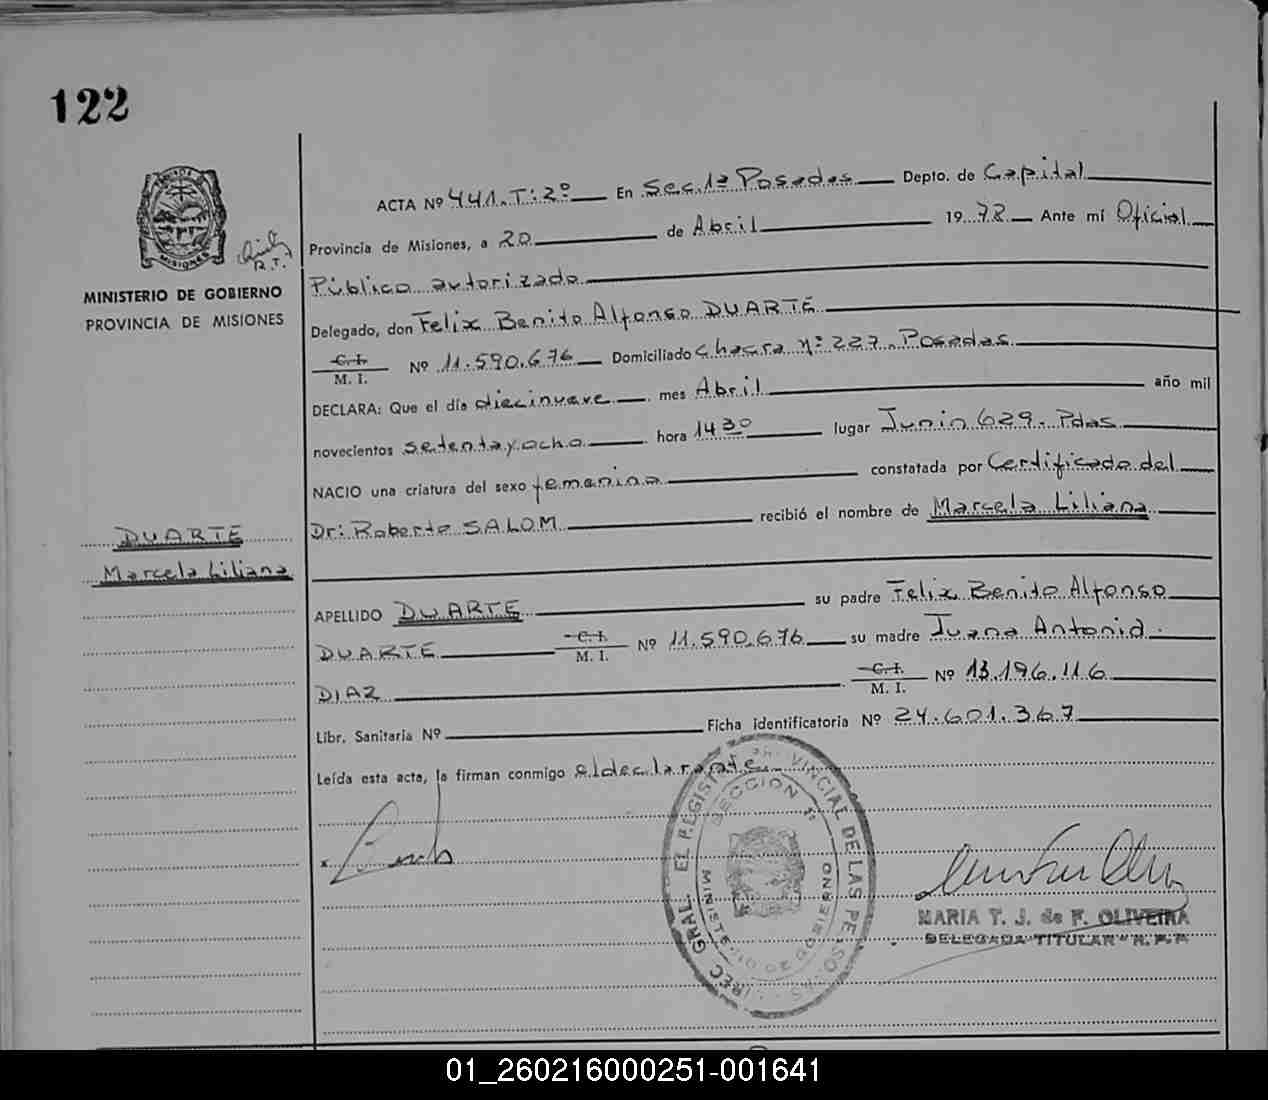 122
MINISTERIO DE GOBIERNO
PROVINCIA DE MISIONES
ACTA Nº 441. T: 2º En Sec. 1ª Posadas Depto. de Capital
Provincia de Misiones, a 20 de Abril 1978 Ante mí Oficial
Público autorizado
Delegado, don Felix Benito Alfonso DUARTE
C. I.
M. I. Nº 11.590.676 Domiciliado Chacra Nº 227. Posadas
DECLARA: Que el día diecinueve mes Abril año mil
novecientos setenta y ocho hora 14 30 lugar Junin 629. Pdas
NACIO una criatura del sexo femenino constatada por Certificado del
Dr: Roberto SALOM recibió el nombre de Marcela Liliana
DUARTE
Marcela Liliana
APELLIDO DUARTE su padre Felix Benito Alfonso
DUARTE C. I.
M. I. Nº 11.590.676 su madre Juana Antonia
DIAZ C. I.
M. I. Nº 13.196.116
Libr. Sanitaria Nº Ficha identificatoria Nº 24.601.367
Leída esta acta, la firman conmigo el declarante
DIREC. GRAL. EL REGISTRO PROVINCIAL DE LAS PERSONAS
SECCION 1ª
MINISTERIO DE GOBIERNO
MARIA T. J. de F. OLIVEIRA
DELEGADA TITULAR R. P. P.
01_260216000251-001641